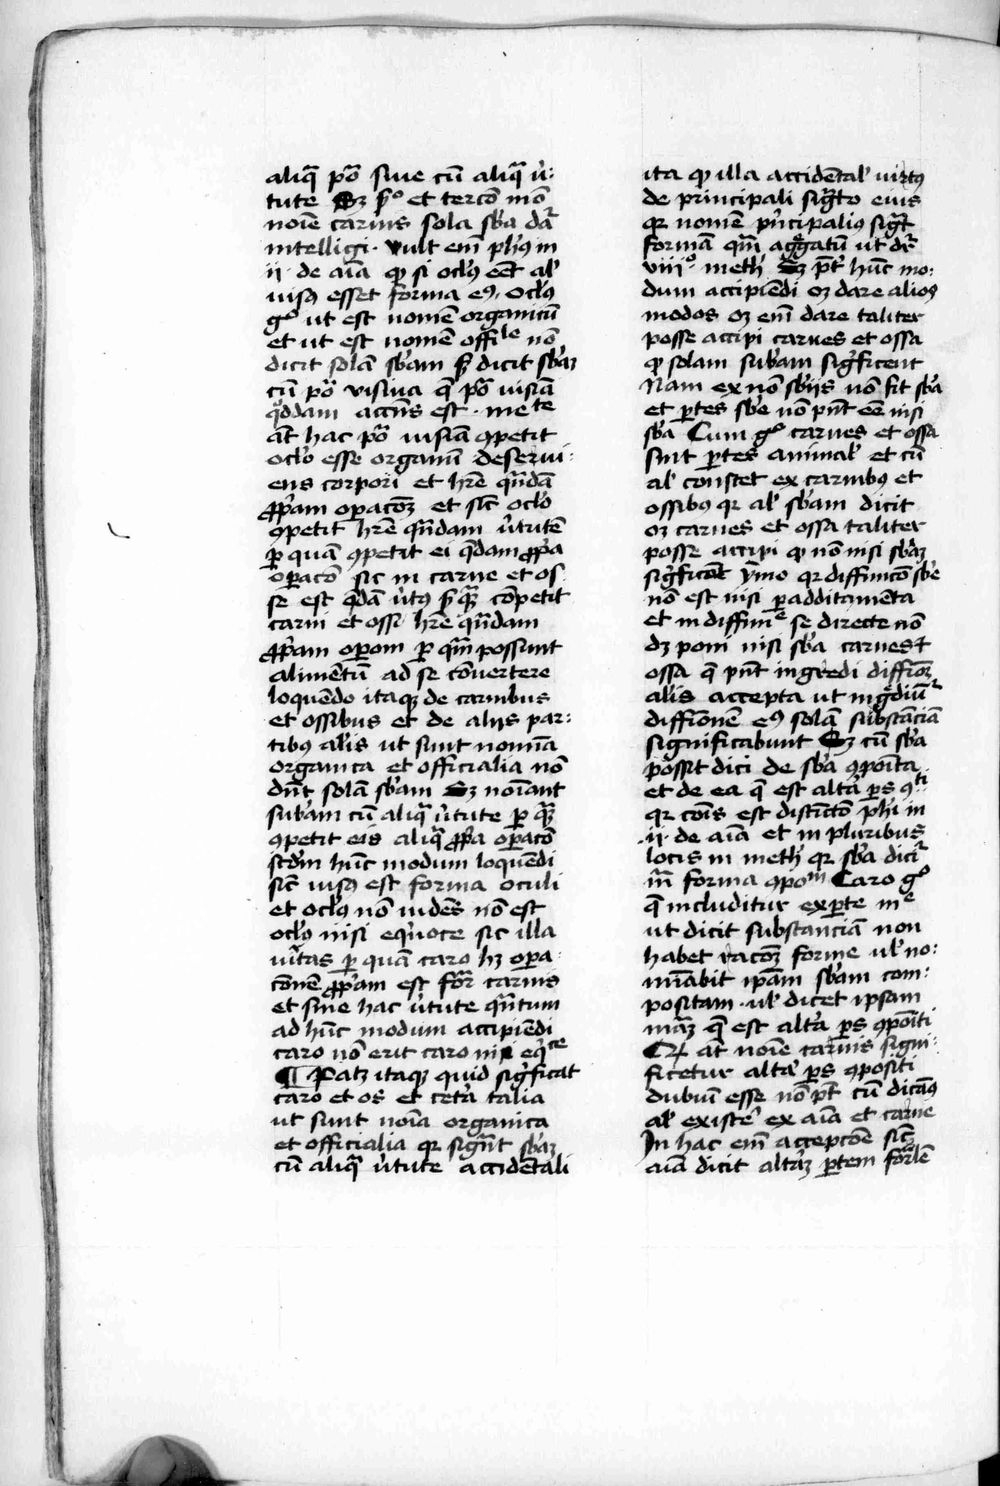 aliq̄ põ siue cũ aliq̄ v̉:
tute Sꝫ s̃ᵒ et tercõ mõ
noīe carnis sola sb̉a dr̃
intelligi · vult em̃ ph̉ꝰ in
ii · de aīa qꝫ si ocl̉ꝰ eẽt al̉
visꝰ esset forma eꝰ · Ocl̉ꝰ
gᵒ ut est nomẽ organicũ
et ut est nomẽ offiˡᵉ nõ
dicit solã sb̉am sꝫ dicit sb̉aꝫ
cũ põ visiua q̄ põ visiã
q̊ddam acc̃ns est · meᵗᵉ
aũt hac põ visiã ꝯpetit
ocl̉o esse organũ deserui:
ens corpori et hr̃e qñdã
ꝓp̉am op̉acoꝫ et sic̃ ocl̉o
ꝯpetit hr̃e qñdam v̉tutẽ
ꝑ quã ꝯpetit ei q̃dam ꝓp̉a
oꝑacõ sic in carne et os
se est q̃dã v̉tꝰ ꝑ quã cõpetit
carni et ossi hr̃e qñdam
ꝓp̉am oꝑom ꝑ qm̃ possunt
alimẽtũ ad se cõuertere
loquẽdo itaqꝫ de carnibus
et ossibus et de alijs par:
tibꝰ al̉is ut sunt nomīa
organica et officialia nõ
dñt solã sb̉am Sꝫ noīant
subam cũ aliq̄ v̉tute ꝑ q̃ꝫ
ꝯpetit eis aliq̄ ꝓp̉a oꝑacõ
scd̉m hũc modum loquẽdi
sic̃ visꝰ est forma oculi
et ocl̉ꝰ nõ vidẽs nõ est
ocl̉ꝰ nisi eq̉uoce sic illa
v̉itas ꝑ quã caro hꝫ oꝑa
cõnẽ ꝓp̉am est for̃ carnis
et sine hac v̉tute qñtum
ad hũc modum accipiẽdi
caro nõ erit caro nisi eq̉ᶜᵉ
¶ Patꝫ itaqꝫ quid sig̉ficat
caro et os et cet̉a talia
ut sunt noīa organica
et officialia qꝛ sigñt sb̉aꝫ
cũ aliq̄ v̉tute accidẽtali
ita qꝫ illa accidẽtal̉ virtꝰ
de principali sig̃to eius
qꝛ nomẽ p̉ncipaliꝰ sig̃t
formã qm̃ ag̃gatũ ut dr̃
viiiᵒ · meth̉ Sꝫ p̃t hũc mo:
dum accipiẽdi oꝫ dare alios
modos oꝫ em̃ dare taliter
posse accipi carnes et ossa
qꝫ solam subam sig̉ficent
Nam ex nõ sb̉iis nõ fit sb̉a
et ꝑtes sb̉e nõ pñt eẽ nisi
sb̉a Cum gᵒ carnes et ossa
sint ꝑtes animal̉ et cũ
al̉ constet ex carnibꝰ et
ossibus qꝛ al̉ sb̉am dicit
oꝫ carnes et ossa taliter
posse accipi qꝫ nõ nisi sb̉aꝫ
sig̉ficẽt ẏmo qꝛ diffinicõ sb̉e
nõ est nisi ꝑ additamẽta
et in diffiniᵉ se directe nõ
dꝫ poni nisi sb̉a carnes ⁊
ossa q̄ pñt ing̉redi diffiõꝫ
al̉is accepta ut ing̉diũt̃
diffiõnẽ eꝰ solã substãciã
significabunt Sꝫ cũ sb̉a
possit dici de sb̉a ꝯpoĩta
et de ea q̄ est alta ꝑs ꝯᵗⁱ
qꝛ cõis est distĩctõ ph̉i in
ii · de aīa et in pluribus
locis in meth̉ qꝛ sb̉a dicit̃
m̃ forma ꝯpoᵐ Caro gᵒ
q̄ includitur ex ꝑte mᵉ
ut dicit substanciã non
habet racoꝫ forme ul̉ no:
mīabit ip̃am sb̉am com:
positam · ul̉ dicet ipsam
mãꝫ q̄ est alta ꝑs ꝯpoĩti
Qꝫ aũt noīe carnis signi:
ficetur alta ꝑs ꝯpositi
dubiũ esse nõ p̃t cũ dicãꝰ
al̉ existe̊ ex aīa et carne
In hac em̃ accepcõe sic̃
aīa dicit altãꝫ ꝑtem for̃lẽ